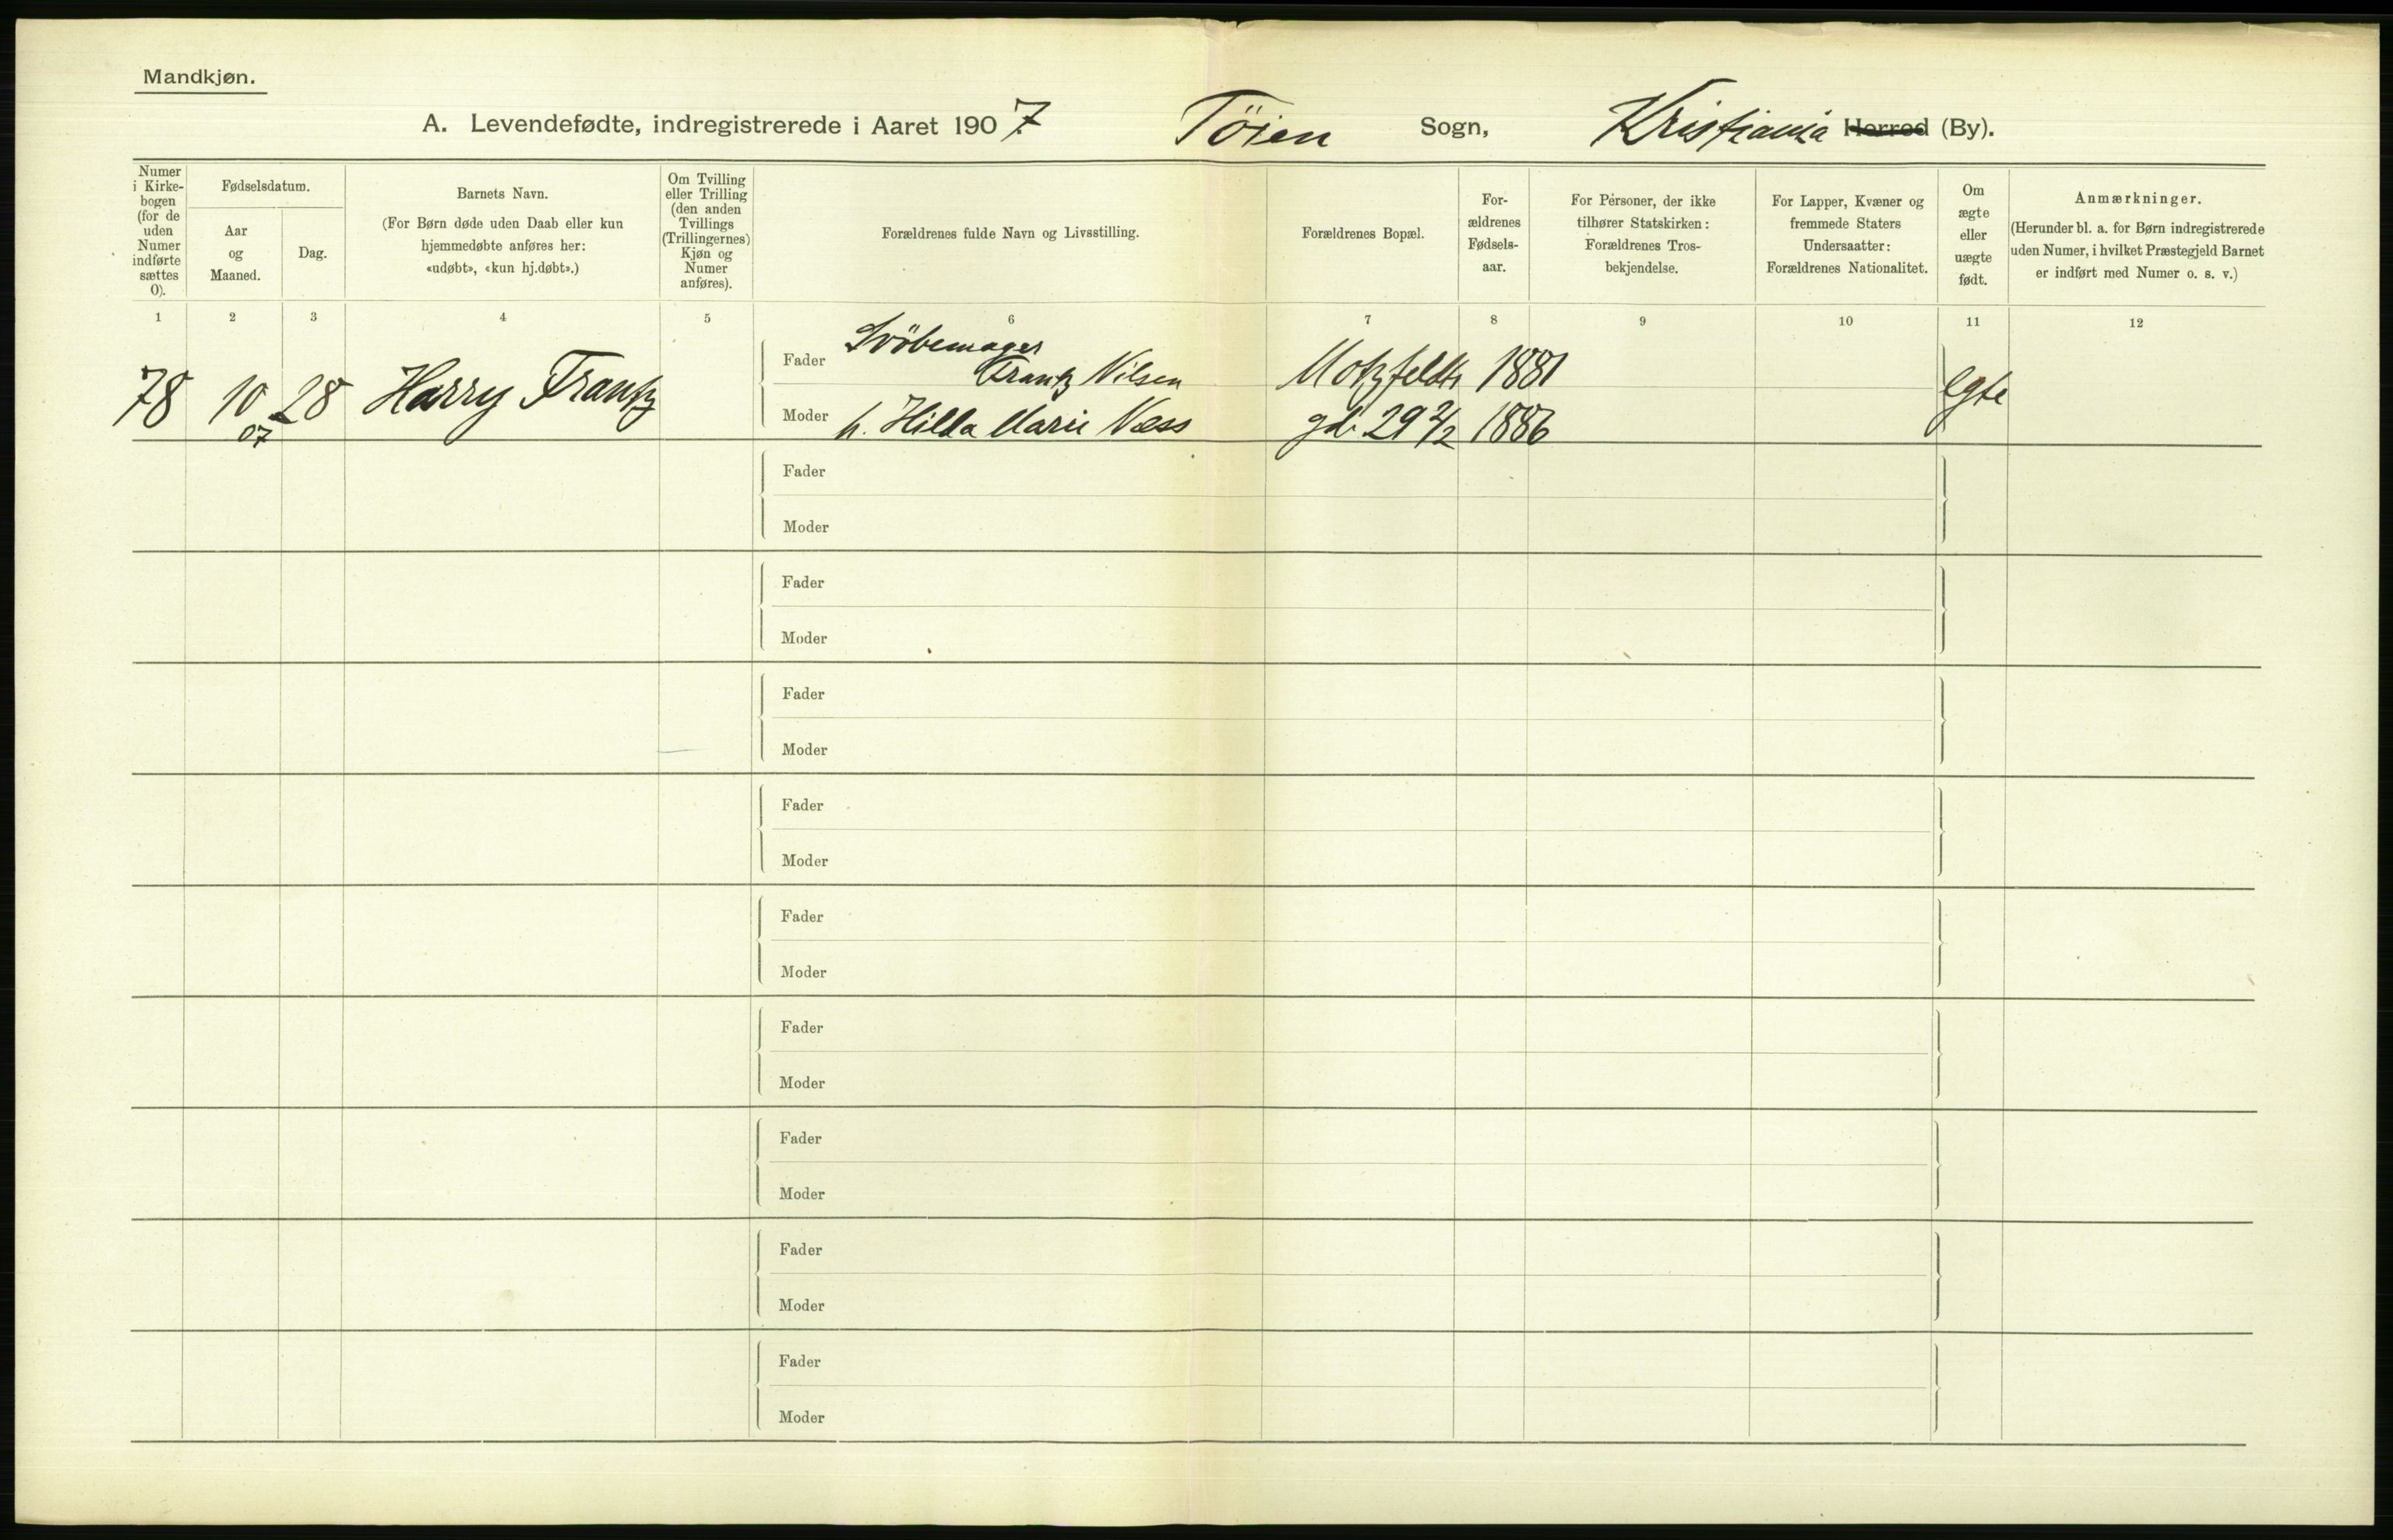 Mandkjøn.
A. Levendefødte, indregistrerede i Aaret 1907 Töien Sogn, Kristiania Herred (By).
Numer
i Kirke-
bogen
(for de
uden
Numer
indførte
sættes
0).
Fødselsdatum.
Aar
og
Maaned.
Dag.
Barnets Navn.
(For Børn døde uden Daab eller kun
hjemmedøbte anføres her:
«udøbt», «kun hj.døbt».)
Om Tvilling
eller Trilling
(den anden
Tvillings
(Trillingernes)
Kjøn og
Numer
anføres).
Forældrenes fulde Navn og Livsstilling.
Forældrenes Bopæl.
For-
ældrenes
Fødsels-
aar.
For Personer, der ikke
tilhører Statskirken:
Forældrenes Tros-
bekjendelse.
For Lapper, Kvæner og
fremmede Staters
Undersaatter:
Forældrenes Nationalitet.
Om
ægte
eller
uægte
født.
Anmærkninger.
(Herunder bl. a. for Børn indregistrerede
uden Numer, i hvilket Præstegjeld Barnet
er indført med Numer o. s. v.)
1 2 3 4 5 6 7 8 9 10 11 12
78 10 28 Harry Frantz
07
Fader Svöbemager
Frantz Nilsen Motzfeldts 1881
Moder h. Hilda Marie Næss gd. 29 2/2 1886
egte
Fader
Moder
Fader
Moder
Fader
Moder
Fader
Moder
Fader
Moder
Fader
Moder
Fader
Moder
Fader
Moder
Fader
Moder